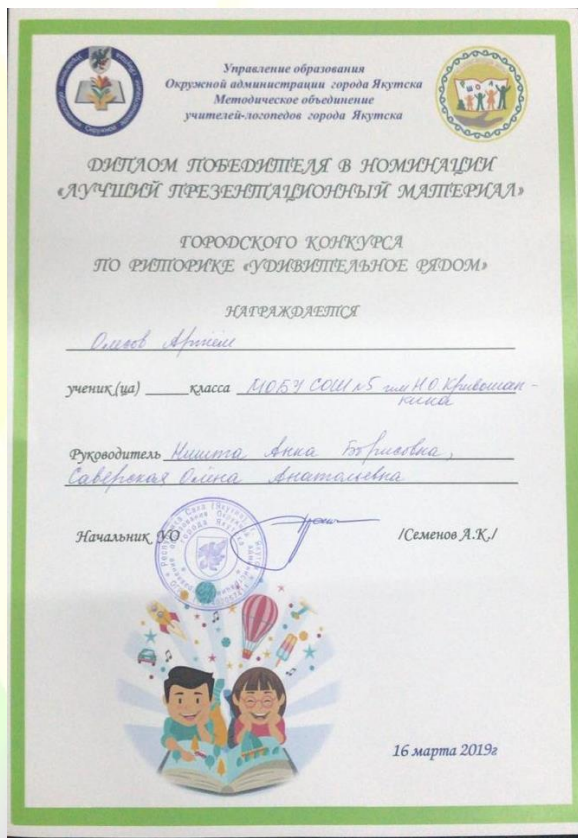 Управление образования
Окружной администрации города Якутска
Методическое объединение
учителей-логопедов города Якутска
ДИПЛОМ ПОБЕДИТЕЛЯ В НОМИНАЦИИ
«ЛУЧШИЙ ПРЕЗЕНТАЦИОННЫЙ МАТЕРИАЛ»
ГОРОДСКОГО КОНКУРСА
ПО РИТОРИКЕ «УДИВИТЕЛЬНОЕ РЯДОМ»
НАГРАЖДАЕТСЯ
Артём
ученик (ца) класса МОБУ СОШ №5 им Н.О. Кривошап-
кина
Руководитель Анна Борисовна,
Саверская Анатольевна
Начальник УО /Семенов А.К./
16 марта 2019г